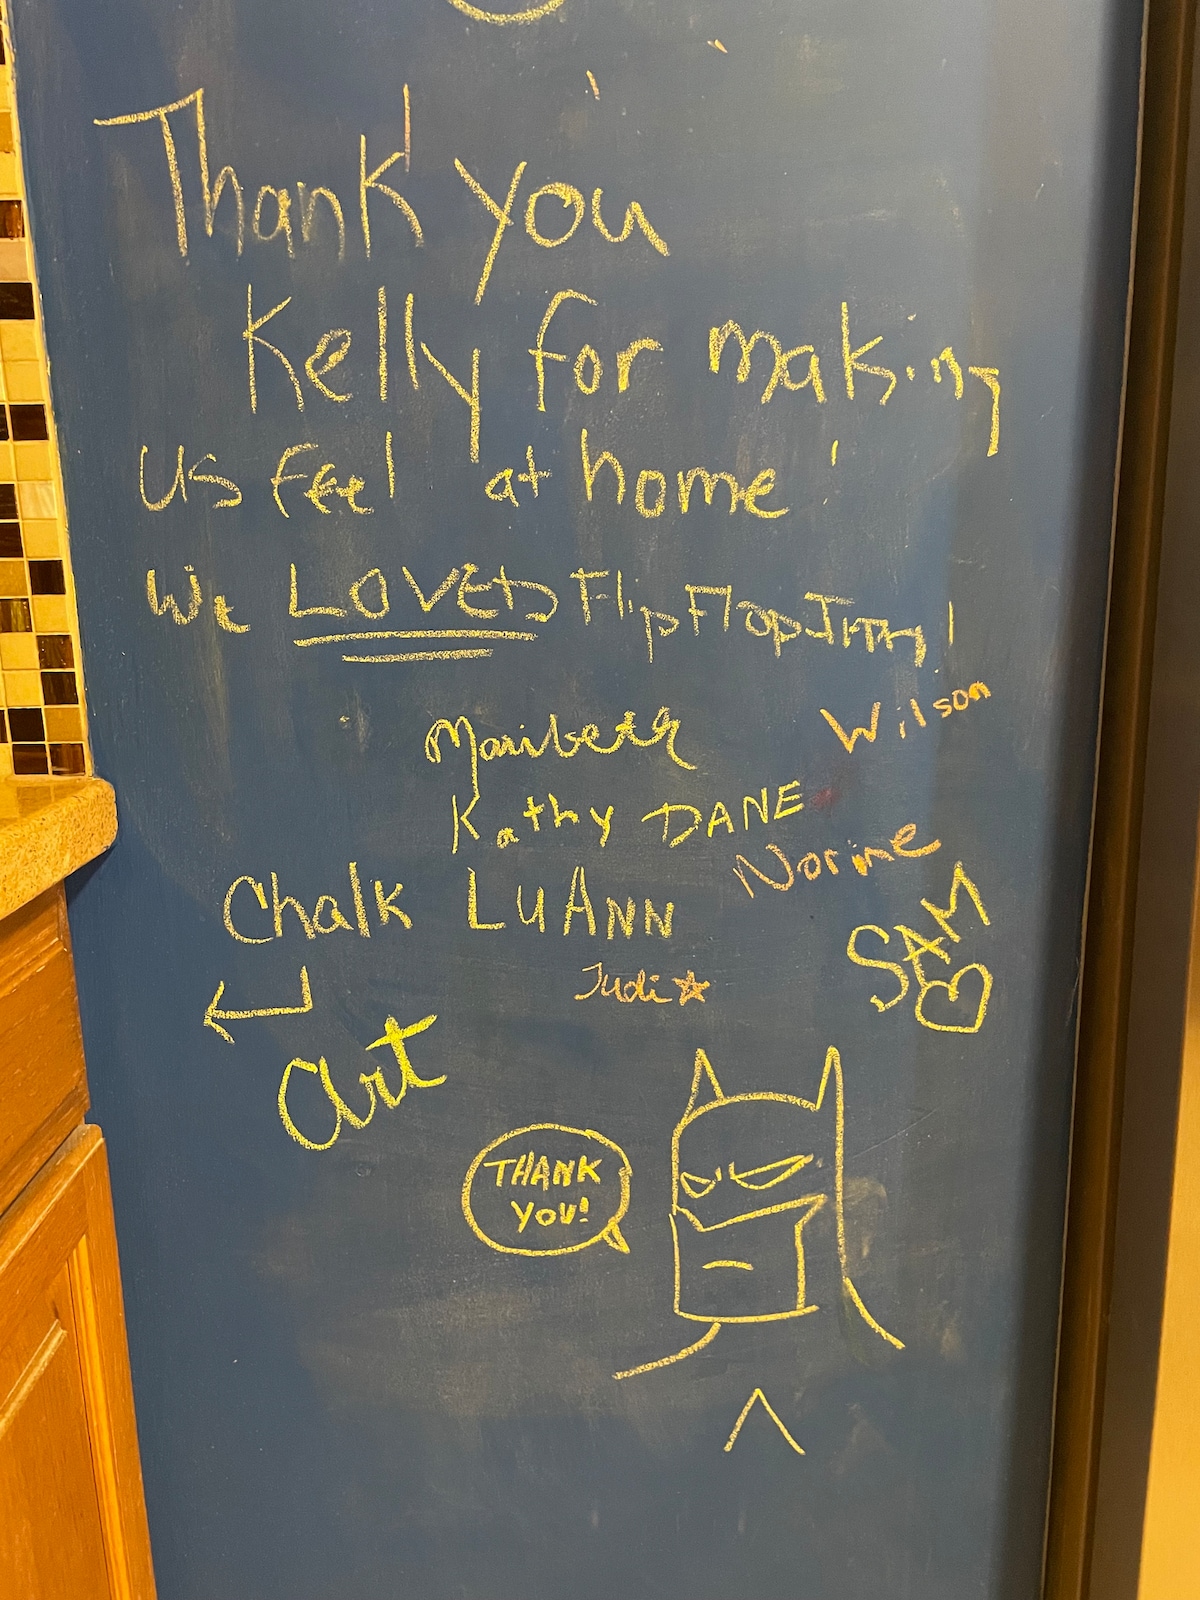 Thank you
Kelly for making
us feel at home!
We LOVED FlipFlopJimmy!
Maribeth
Wilson
Kathy DANE
Norine
Chalk LUANN
SAM
Judi
art
THANK
YOU!